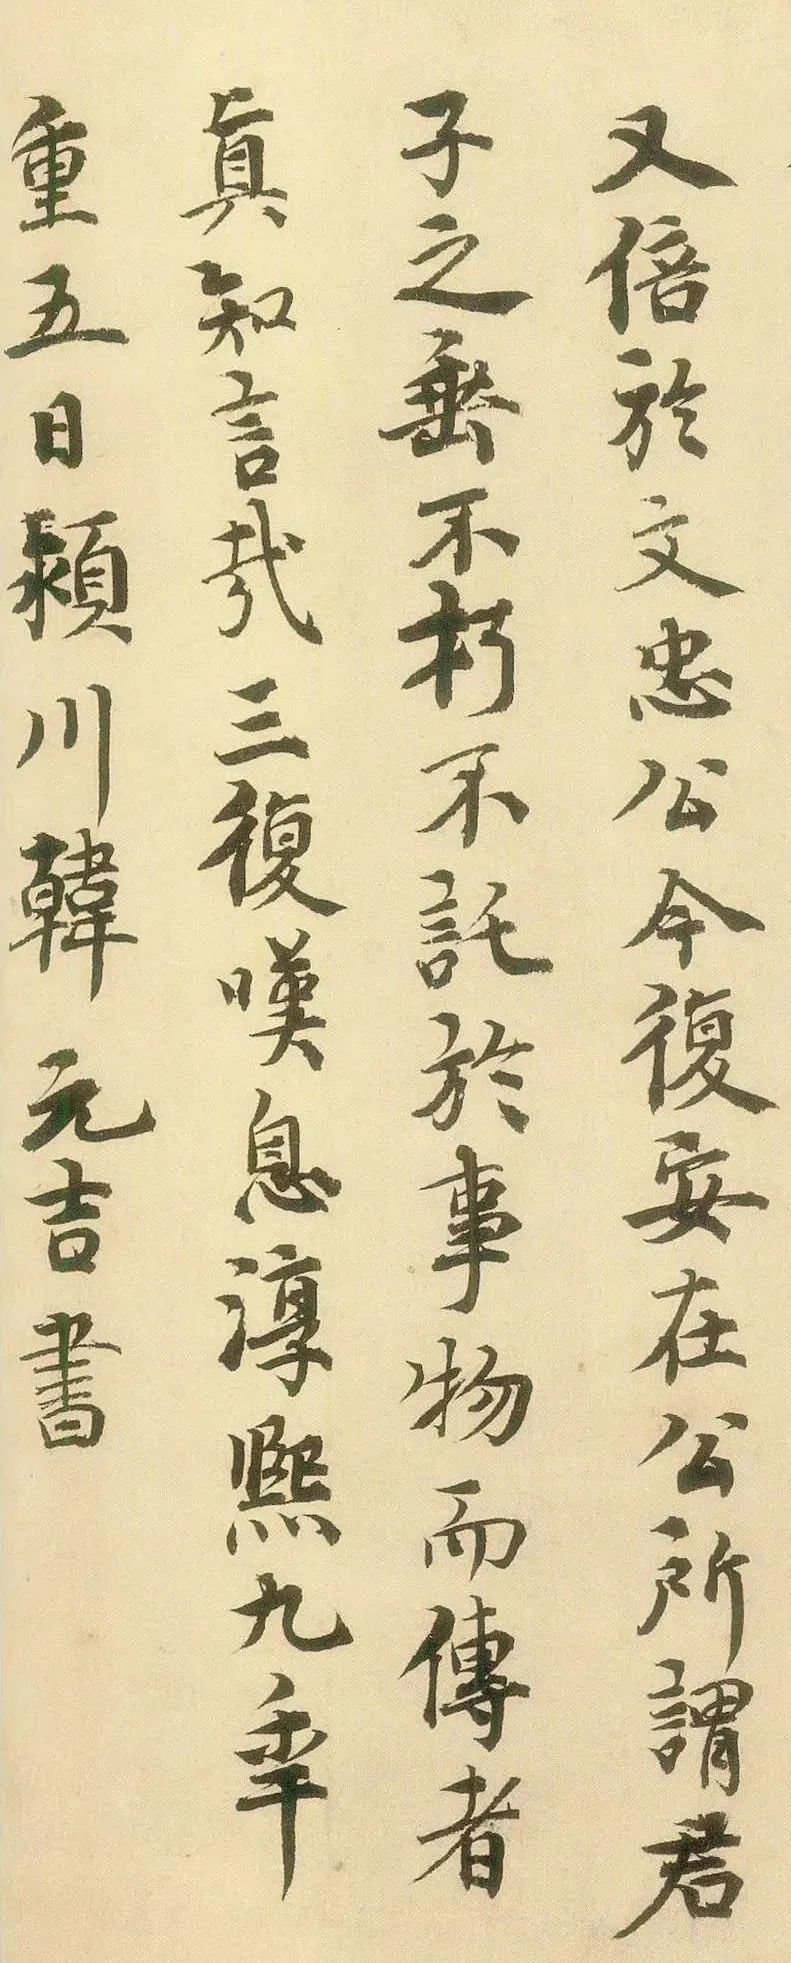 又倍於文忠公今復安在公所謂君
子之垂不朽不託於事物而傳者
真知言哉三復嘆息淳熙九年
重五日潁川韓元吉書